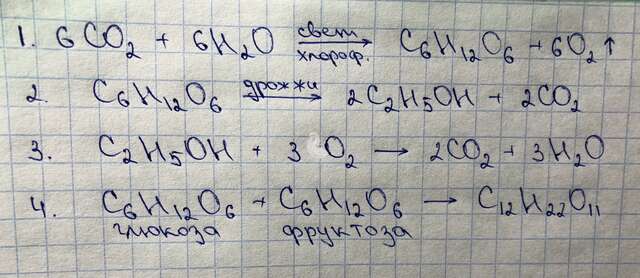 1. 6CO₂ + 6H₂O свет хлороф. → C₆H₁₂O₆ + 6O₂↑
2. C₆H₁₂O₆ дрожжи → 2C₂H₅OH + 2CO₂
3. C₂H₅OH + 3 O₂ → 2CO₂ + 3H₂O
4. C₆H₁₂O₆ + C₆H₁₂O₆ → C₁₂H₂₂O₁₁
глюкоза фруктоза